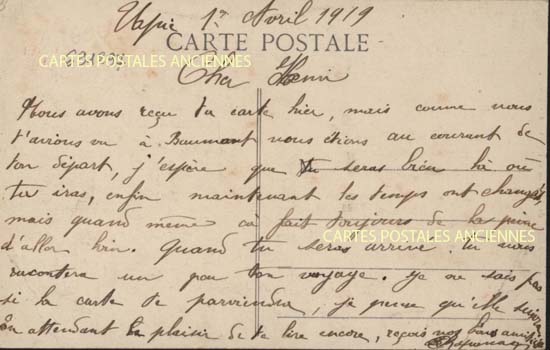 1er Avril 1919
CARTE POSTALE
CARTES POSTALES ANCIENNES
Cher Henri
Nous avons reçu ta carte hier, mais comme nous
t'avions vu à Beaumont nous étions au courant de
ton départ, j'espère que tu seras bien là où
tu iras, enfin maintenant les temps ont changés
mais quand même cà fait toujours de la peine
CARTES POSTALES ANCIENNES
d'aller loin. Quand tu seras arrivé tu nous
racontera un peu ton voyage. je ne sais pas
si la carte te parviendra, je pense qu'elle suivra
En attendant le plaisir de te lire encore, reçois nos bons amitiés